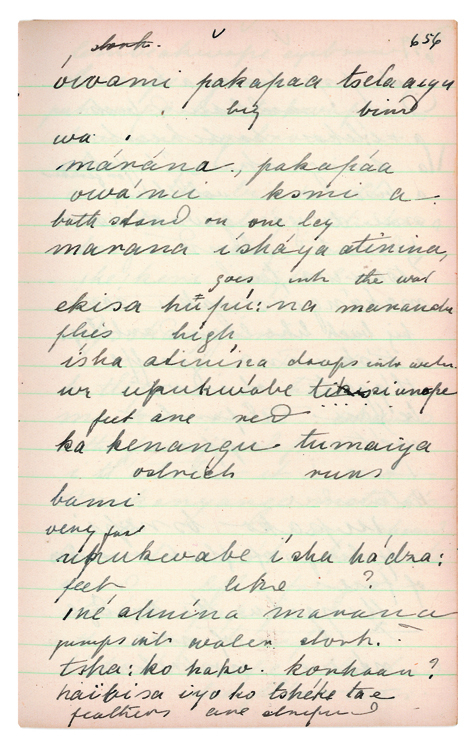 stork. 656
óivami pakapaa tselaaigu
big bird
wa.
márána., pakapáa
owánii ksmi a
both stand on one leg
marana íshàya atinina,
goes into the water
ekisa híṭpú:na marandu
flies high
ísha atinína drops into water.
wz upukwábe
feet are red
ka kenangu. tumaiya
ostrich runs
bami
very fast
upukwabe ísha hádza:
feet like ?
iné atinína marana
jumps into water stork.
tsha:ko hako. konhaan?
haibisa iyo ko tshéke ta e
feathers are striped